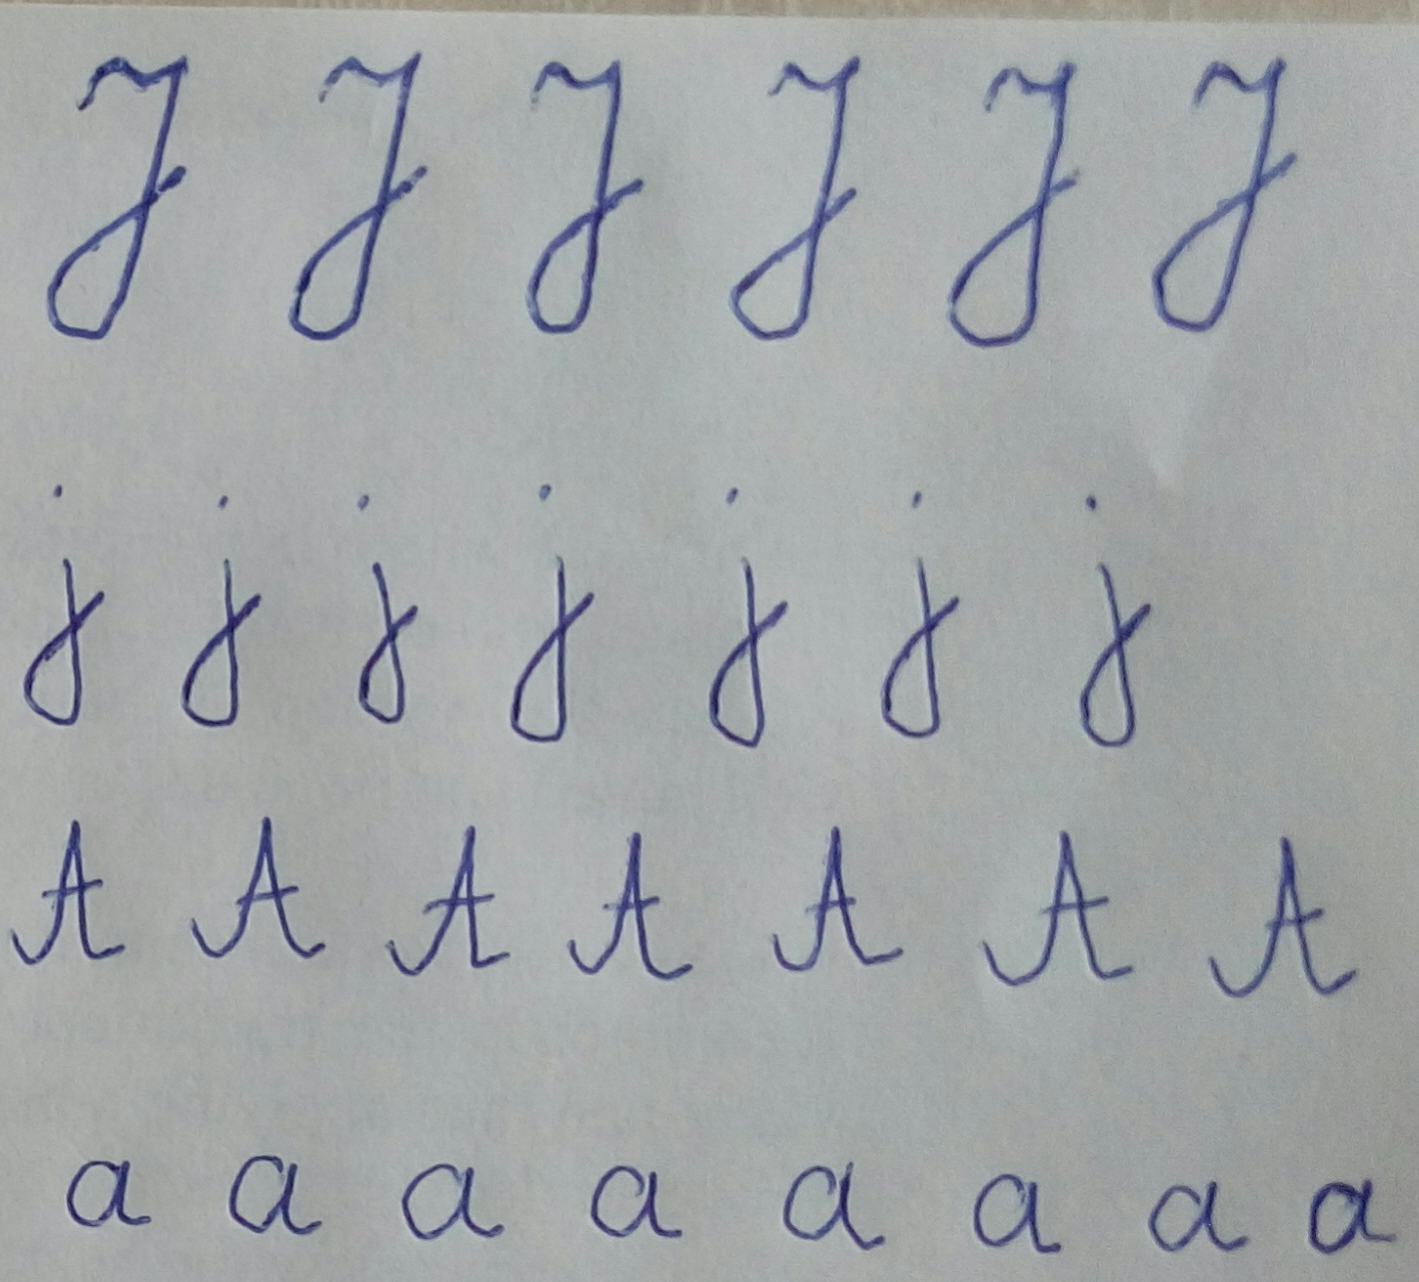 J J J J J J
j j j j j j j
A A A A A A A
a a a a a a a a